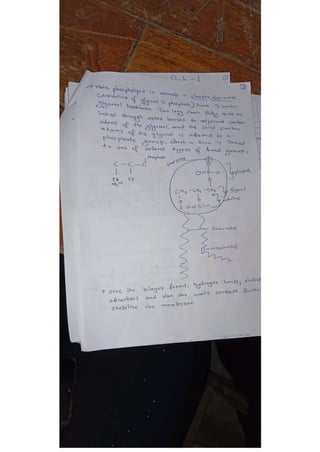 → Main phospholipid in animals is phosphoglyceride
(derivative of glycerol 3 phosphate) have 3 carbon
glycerol backbone. Two long chain fatty acids are
linked through ester bonds to adjacent carbon
atoms of the glycerol, and the third carbon
atom of the glycerol is attached to a
phosphate group, which in turn is linked
to one of several types of head groups.
C - C - C
phosphate
FA
FA
O=P-O
phosphate
CH2 - CH - CH2
glycerol
* once the bilayer forms, hydrogen bonds,
attractions and van der waals contacts further
stabilize the membrane